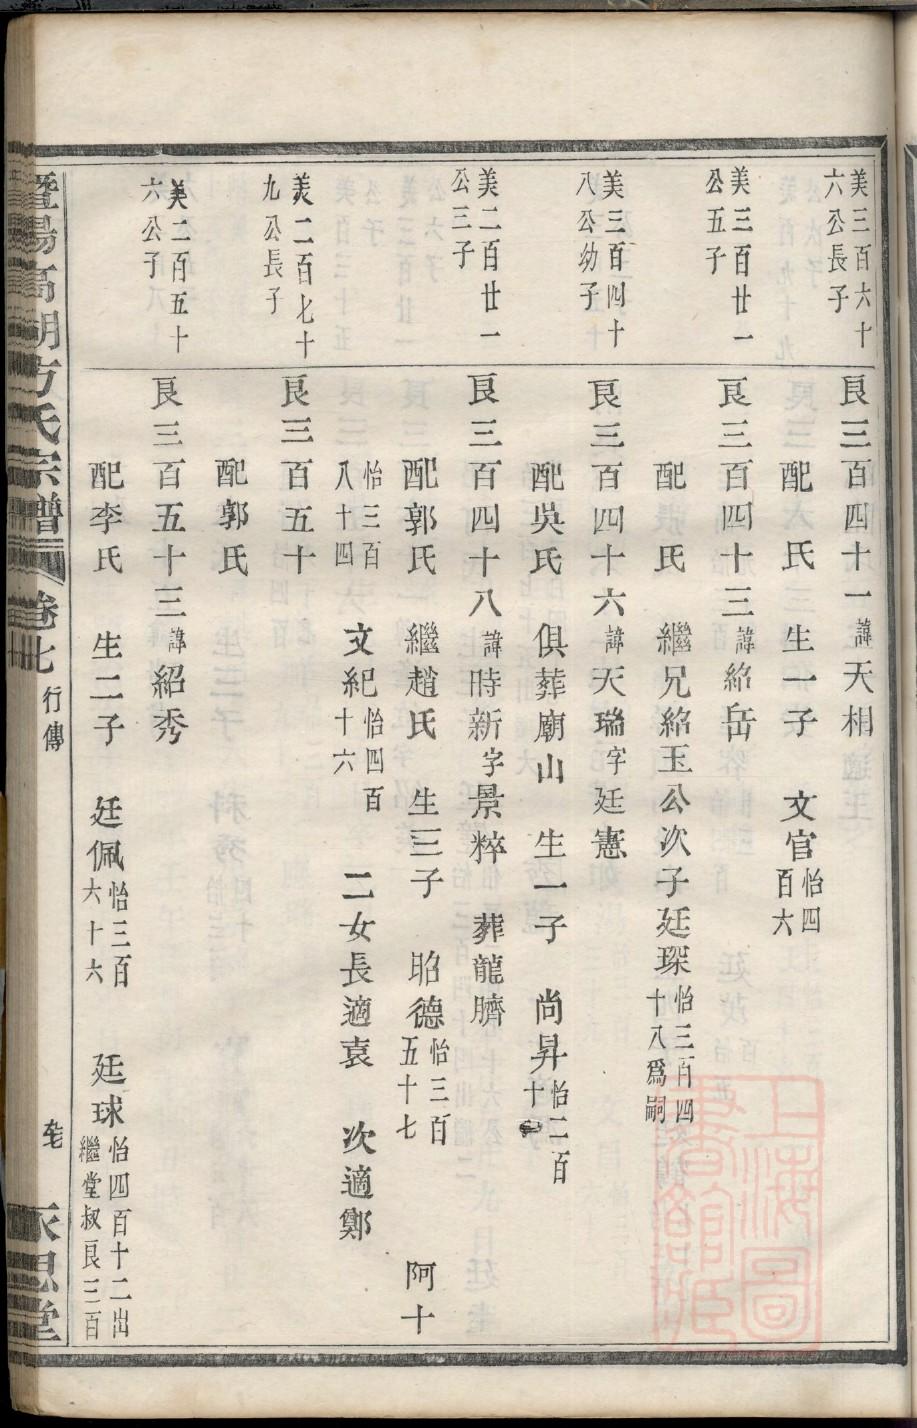 美三百六十
六公長子
良三百四十一諱天相
配 氏 生一子 文官怡四百六
美三百廿一
公五子
良三百四十三諱紹岳
配 氏 繼兄紹玉公次子廷琛怡三百四十八爲嗣
美三百四十
八公幼子
良三百四十六諱天瑞字廷憲
配吳氏 俱葬廟山 生一子 尚昇怡二百十
美二百廿一
公三子
良三百四十八諱時新字景粹 葬龍臍
配郭氏 繼趙氏 生三子 昭德怡三百五十七 阿十
怡三百八十四 文紀怡四百十六 二女長適袁 次適鄭
美二百七十
九公長子
良三百五十
配郭氏
美二百五十
六公子
良三百五十三諱紹秀
配李氏 生二子 廷佩怡三百六十六 廷球怡四百十二出繼堂叔良三百
暨陽高湖方氏宗譜 卷七 行傳 永思堂